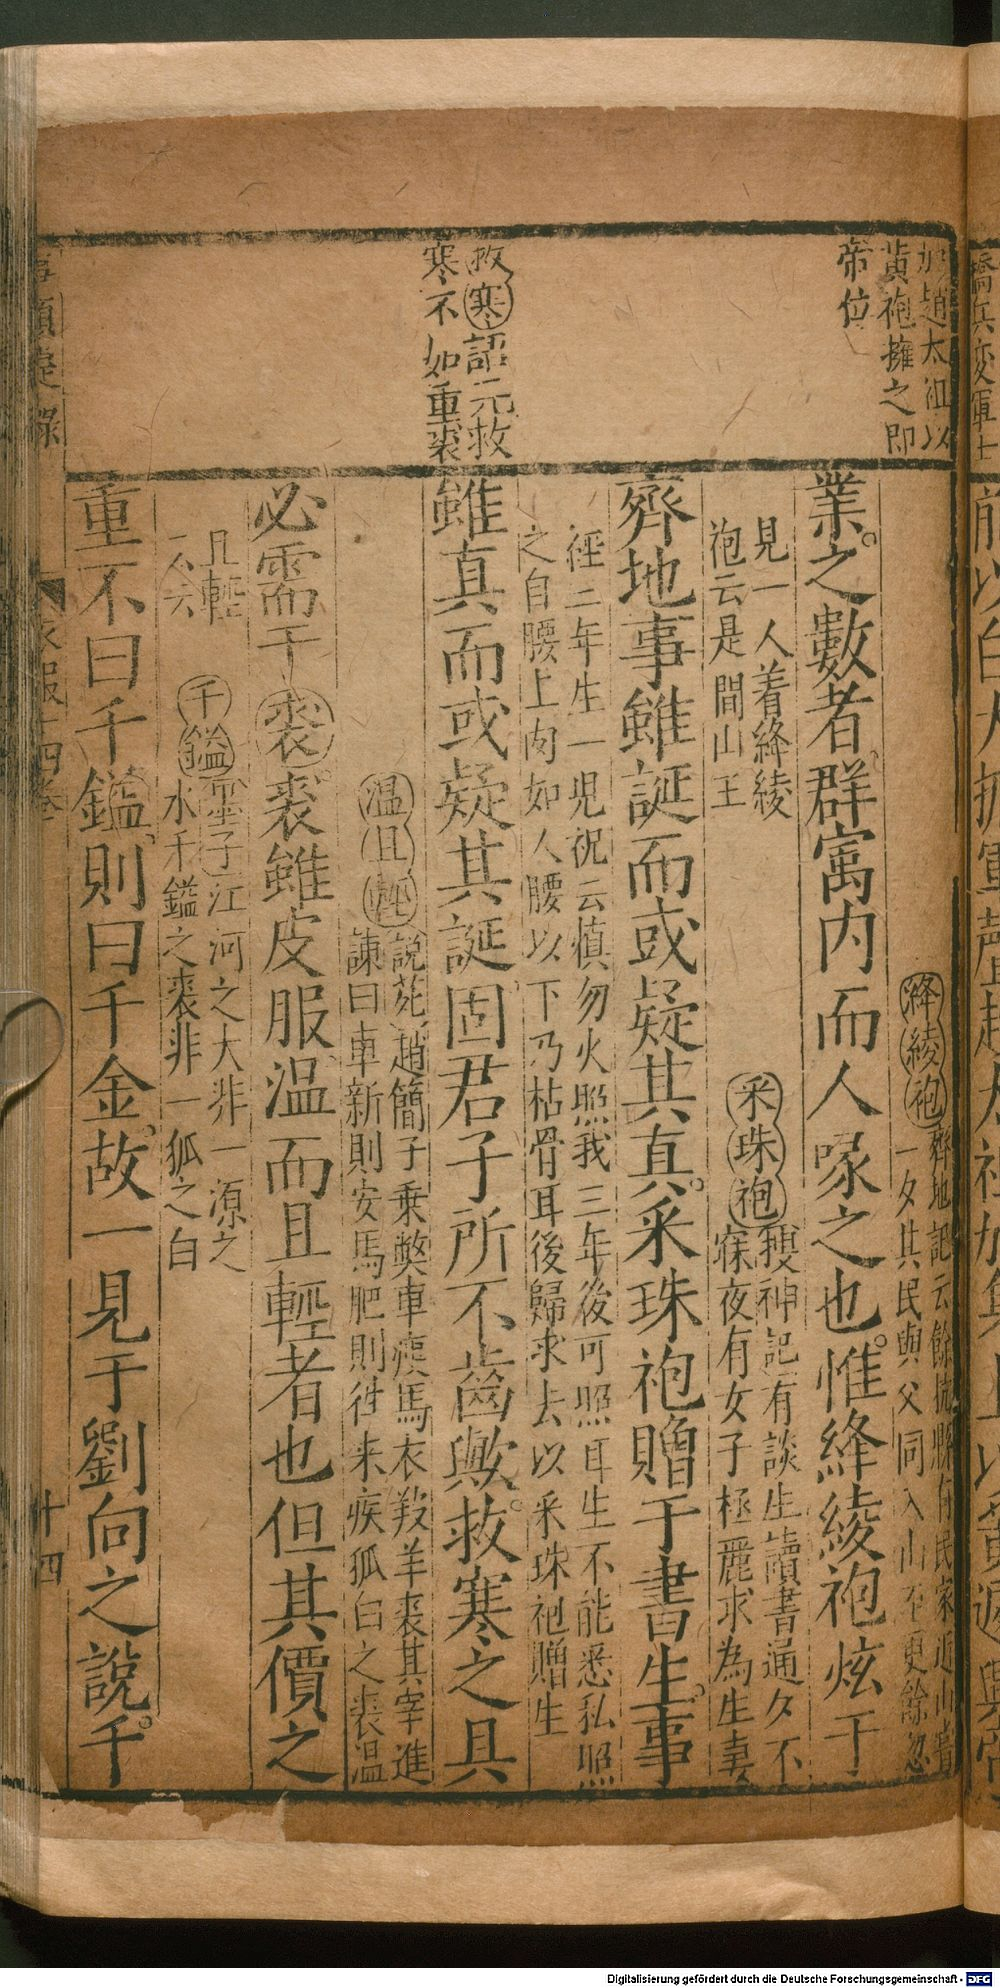 加趙太祖以
黃袍擁之即
帝位
救寒語元救
寒不如重裘
絳綾袍
齊地記云餘抗縣有民家近山
一夕其民與父同入山至更餘忽
業之數者群寓内而人㖨之也惟絳綾袍炫于
見一人着絳綾
袍云是間山王
采珠袍
搜神記有談生讀書通夕不
寐夜有女子極麗求為生妻
齊地事雖誕而或疑其真采珠袍贈于書生事
經二年生一児祝云慎勿火照我三年後可照耳生不能悉私照
之自腰上肉如人腰以下乃枯骨耳後歸求去以采珠袍贈生
雖真而或疑其誕固君子所不齒歟救寒之具
温且軽
說苑趙簡子乗獘車瘦馬衣羖羊裘其宰進
諫曰車新則安馬肥則徃来疾狐白之裘温
必需于裘裘雖皮服温而且輕者也但其價之
且輕
云云
千鎰
墨子江河之大非一源之
水千鎰之裘非一狐之白
重不曰千鎰則曰千金故一見于劉向之說千
事類
衣服十四卷
十四
橋兵变軍士
Digitalisierung gefördert durch die Deutsche Forschungsgemeinschaft - DFG